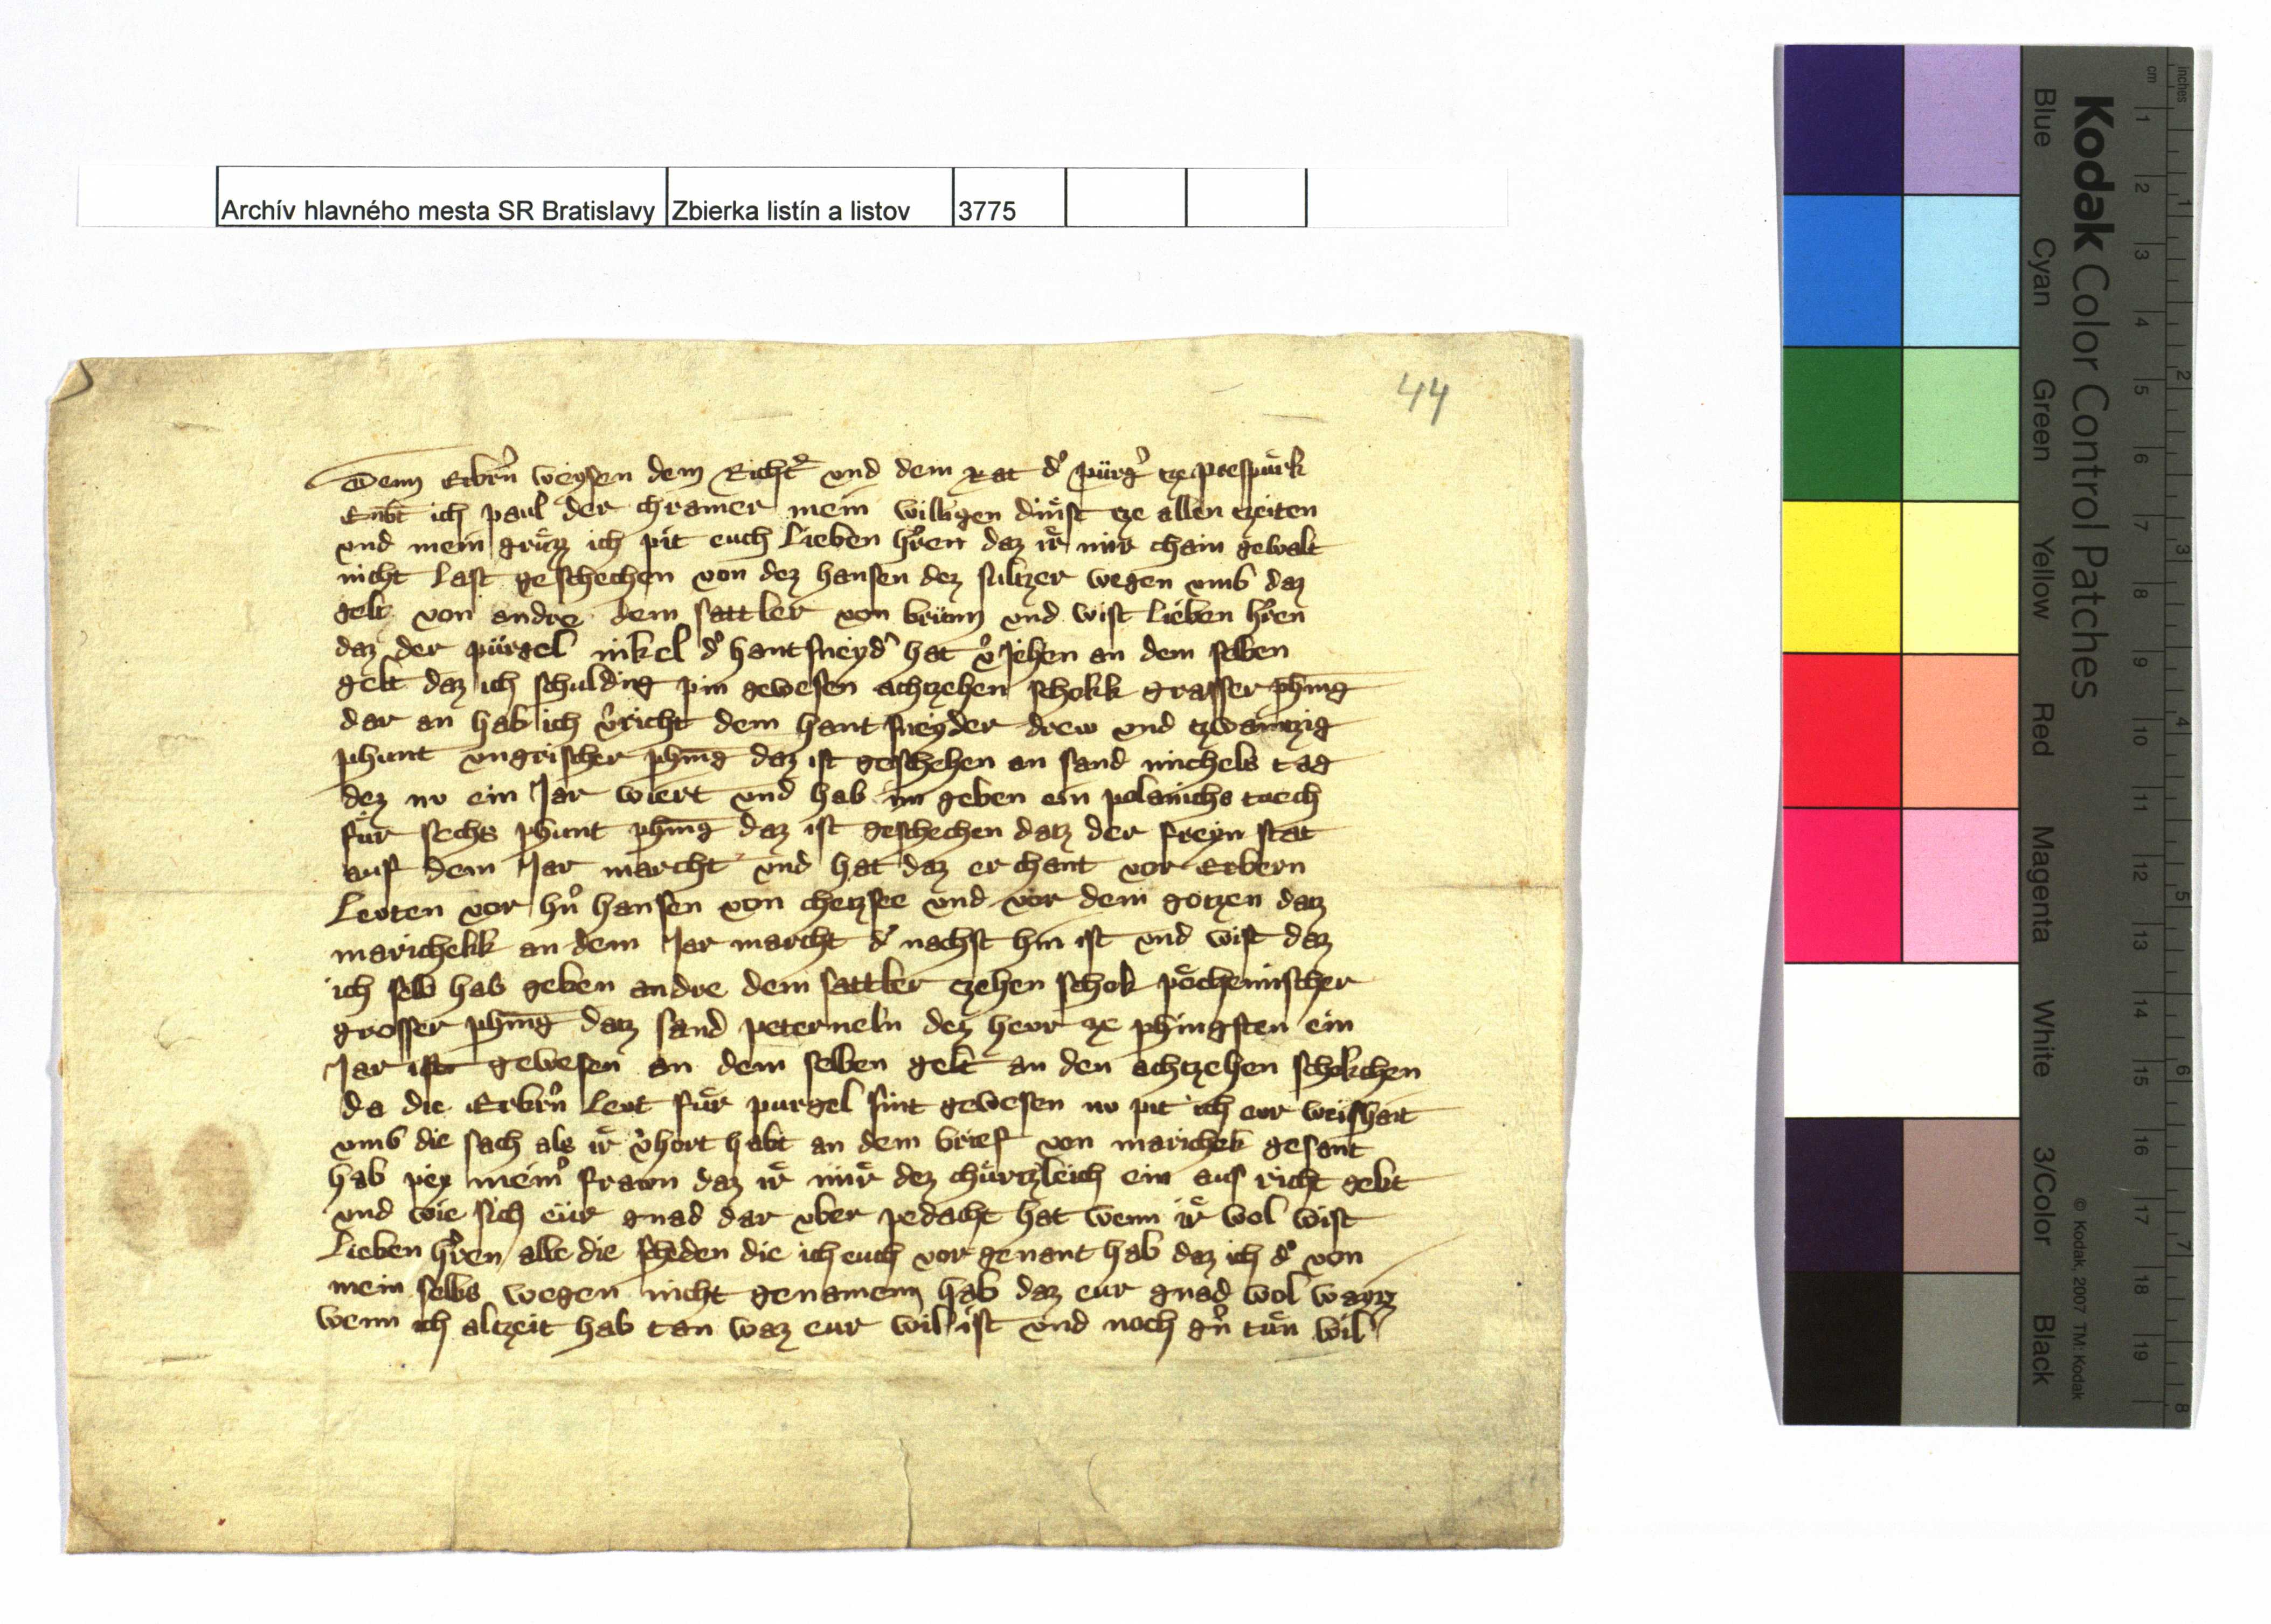 Archív hlavného mesta SR Bratislavy Zbierka listín a listov 3775
44
Dem Erbrn̄ weysen dem Richt̄ vnd dem Rat dˀ pürgˀ tze prespürk
Enbt̄ ich paul der chramer mein willigen dinst tze allen tzeiten
vnd mein grüzz ich pit euch Lieben hˀren daz ir mir chain gewalt
nicht last geschechen von dez hansen dez sultzer wegen vmb daz
gelt von andre dem sattler von brünn vnd wist lieben hˀren
daz der pürgel nikel dˀ hantsneydˀ hat vˀjehen an dem selben
gelt daz ich schulding pin gewesen achtzehen schokk grasser phīng
dar an hab ich vˀricht dem hantsneyder drew vnd tzwaintzig
phunt vngrischer phīng daz ist geschehen an sand michels tag
dez nv ein Jar wiert vnd hab im geben ein polanichs tuech
für sechs phunt phīng daz ist geschechen datz der freyn stat
auf dem Jar marcht vnd hat daz er chant vor Erbern
Levten vor hnˀ hansen von chetzsee vnd vor dem gotzen datz
marichekk an dem Jar marcht dˀ nachst hin ist vnd wist daz
ich selb hab geben andre dem sattler tzehen schok pöchemischer
grosser phīng datz sand peterneln dez hevr ze phingsten ein
Jar ist gewesen an dem selben gelt an den achtzehen schokchen
da die Erbrnˀ Levt für purgel sint gewesen nv pit ich evr weishait
vmb die sach als ir vˀhort habt an dem brief von marichek gesant
hab pey meinˀ frawn daz ir mir dez chürtzleich ein aus richt gebt
vnd wie sich eür gnad dar vber pedacht hat wenn ir wol wist
Lieben hˀren alle die scheden die ich euch vor genant hab daz ich dˀ von
mein selbs wegen nicht genamenn hab daz eur gnad wol wayz
wenn ich altzeit hab tan waz eur wil ist vnd noch gnˀ tün wil
Kodak Color Control Patches
Blue Cyan Green Yellow Red Magenta White 3/Color Black
© Kodak, 2007 TM: Kodak
cm 1 2 3 4 5 6 7 8 9 10 11 12 13 14 15 16 17 18 19
inches 1 2 3 4 5 6 7 8